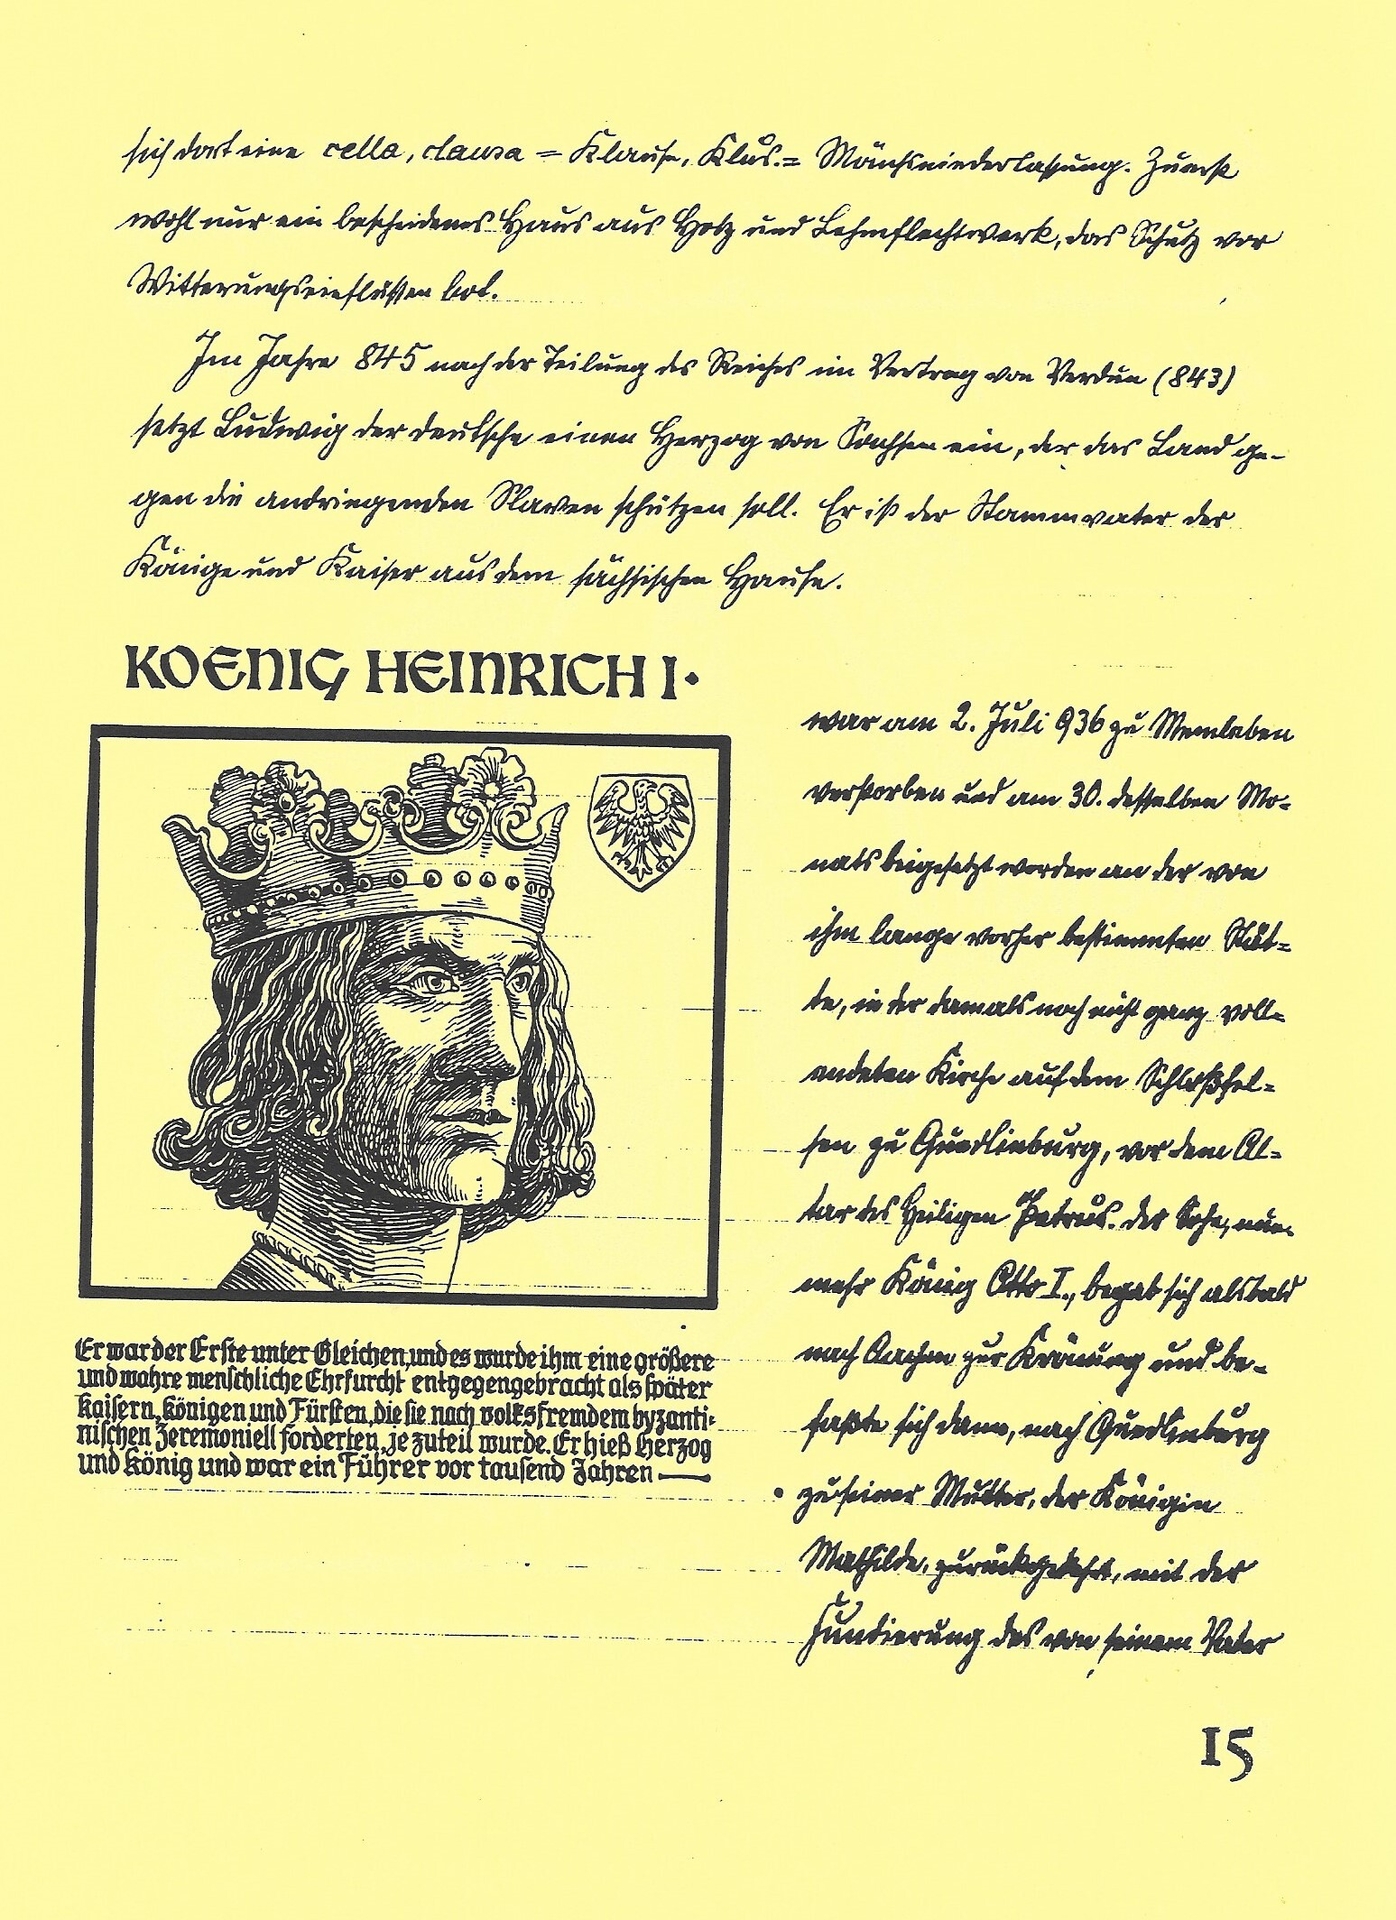 sich dort eine cella, clausa = Klause, Klus. = Mönchsniederlassung. Zuerst
wohl nur ein bescheidenes Haus aus Holz und Lehmflechtwerk, das Schutz vor
Witterungseinflüssen bot.
Im Jahre 845 nach der Teilung des Reiches im Vertrag von Verdun (843)
setzt Ludwig der deutsche einen Herzog von Sachsen ein, der das Land ge-
gen die andringenden Slaven schützen soll. Er ist der Stammvater der
Könige und Kaiser aus dem sächsischen Hause.
KOENIG HEINRICH I.
war am 2. Juli 936 zu Memleben
verstorben und am 30. desselben Mo-
nats beigesetzt worden an der von
ihm lange vorher bestimmten Stät-
te, in der damals noch nicht ganz voll-
endeten Kirche auf dem Schloßfel-
sen zu Quedlinburg, vor dem Al-
tar des Heiligen Petrus. Der Sohn, nun-
mehr König Otto I., begab sich alsbald
nach Aachen zur Krönung und be-
faßte sich dann, nach Quedlinburg
zu seiner Mutter, der Königin
Mathilde, zurückgekehrt, mit der
Fundierung des von seinem Vater
Er war der Erste unter Gleichen, und es wurde ihm eine größere
und wahre menschliche Ehrfurcht entgegengebracht als später
Kaisern, Königen und Fürsten, die sie nach volksfremdem byzanti-
nischen Zeremoniell forderten, je zuteil wurde. Er hieß Herzog
und König und war ein Führer vor tausend Jahren
15